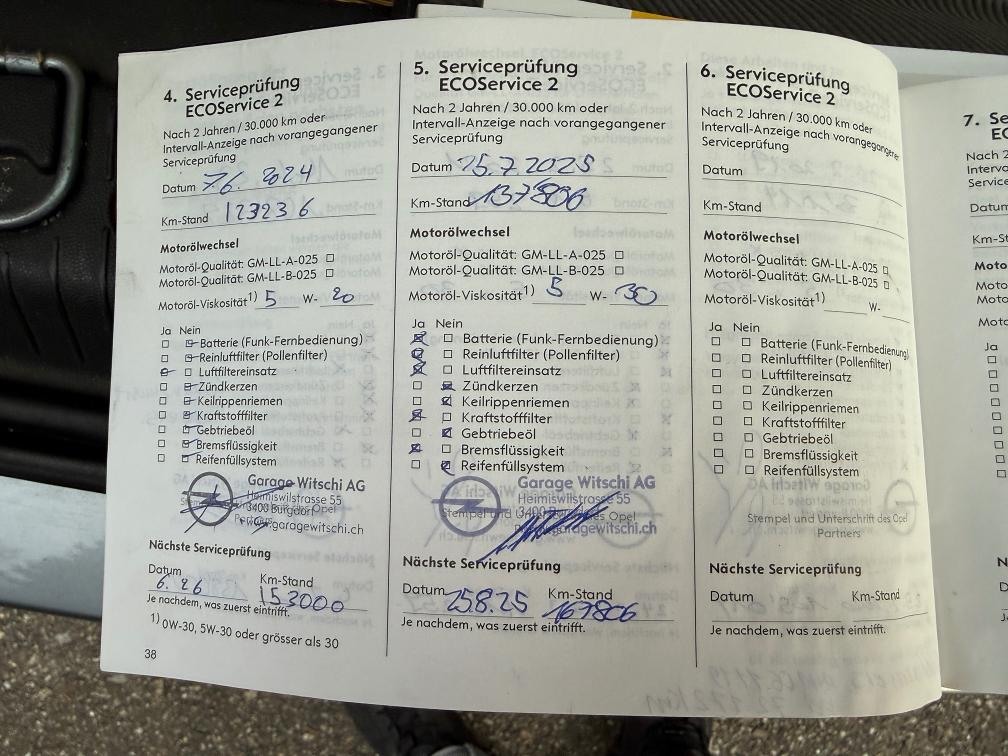 4. Serviceprüfung
ECOService 2
Nach 2 Jahren / 30.000 km oder
Intervall-Anzeige nach vorangegangener
Serviceprüfung
Datum 7.6. 2024
Km-Stand 123236
Motorölwechsel
Motoröl-Qualität: GM-LL-A-025 ☐
Motoröl-Qualität: GM-LL-B-025 ☐
Motoröl-Viskosität1) 5 W- 20
Ja Nein
Batterie (Funk-Fernbedienung)
Reinluftfilter (Pollenfilter)
Luftfiltereinsatz
Zündkerzen
Keilrippenriemen
Kraftstofffilter
Gebtriebeöl
Bremsflüssigkeit
Reifenfüllsystem
Garage Witschi AG
Heimiswilstrasse 55
3400 Burgdorf Opel
garagewitschi.ch
Nächste Serviceprüfung
Datum Km-Stand
6. 26 153000
Je nachdem, was zuerst eintrifft.
1) 0W-30, 5W-30 oder grösser als 30
38
5. Serviceprüfung
ECOService 2
Nach 2 Jahren / 30.000 km oder
Intervall-Anzeige nach vorangegangener
Serviceprüfung
Datum 25.7 2025
Km-Stand 137806
Motorölwechsel
Motoröl-Qualität: GM-LL-A-025 ☐
Motoröl-Qualität: GM-LL-B-025 ☐
Motoröl-Viskosität1) 5 W- 30
Ja Nein
Batterie (Funk-Fernbedienung)
Reinluftfilter (Pollenfilter)
Luftfiltereinsatz
Zündkerzen
Keilrippenriemen
Kraftstofffilter
Gebtriebeöl
Bremsflüssigkeit
Reifenfüllsystem
Garage Witschi AG
Heimiswilstrasse 55
Stempel und 3400 des Opel
garagewitschi.ch
Nächste Serviceprüfung
Datum 25.8.25 Km-Stand 167806
Je nachdem, was zuerst eintrifft.
6. Serviceprüfung
ECOService 2
Nach 2 Jahren / 30.000 km oder
Intervall-Anzeige nach vorangegangener
Serviceprüfung
Datum
Km-Stand
Motorölwechsel
Motoröl-Qualität: GM-LL-A-025 ☐
Motoröl-Qualität: GM-LL-B-025 ☐
Motoröl-Viskosität1) W-
Ja Nein
Batterie (Funk-Fernbedienung)
Reinluftfilter (Pollenfilter)
Luftfiltereinsatz
Zündkerzen
Keilrippenriemen
Kraftstofffilter
Gebtriebeöl
Bremsflüssigkeit
Reifenfüllsystem
Stempel und Unterschrift des Opel
Partners
Nächste Serviceprüfung
Datum Km-Stand
Je nachdem, was zuerst eintrifft.
7. Se
EC
Nach 2
Interva
Service
Datum
Km-St
Moto
Moto
Moto
Moto
Ja